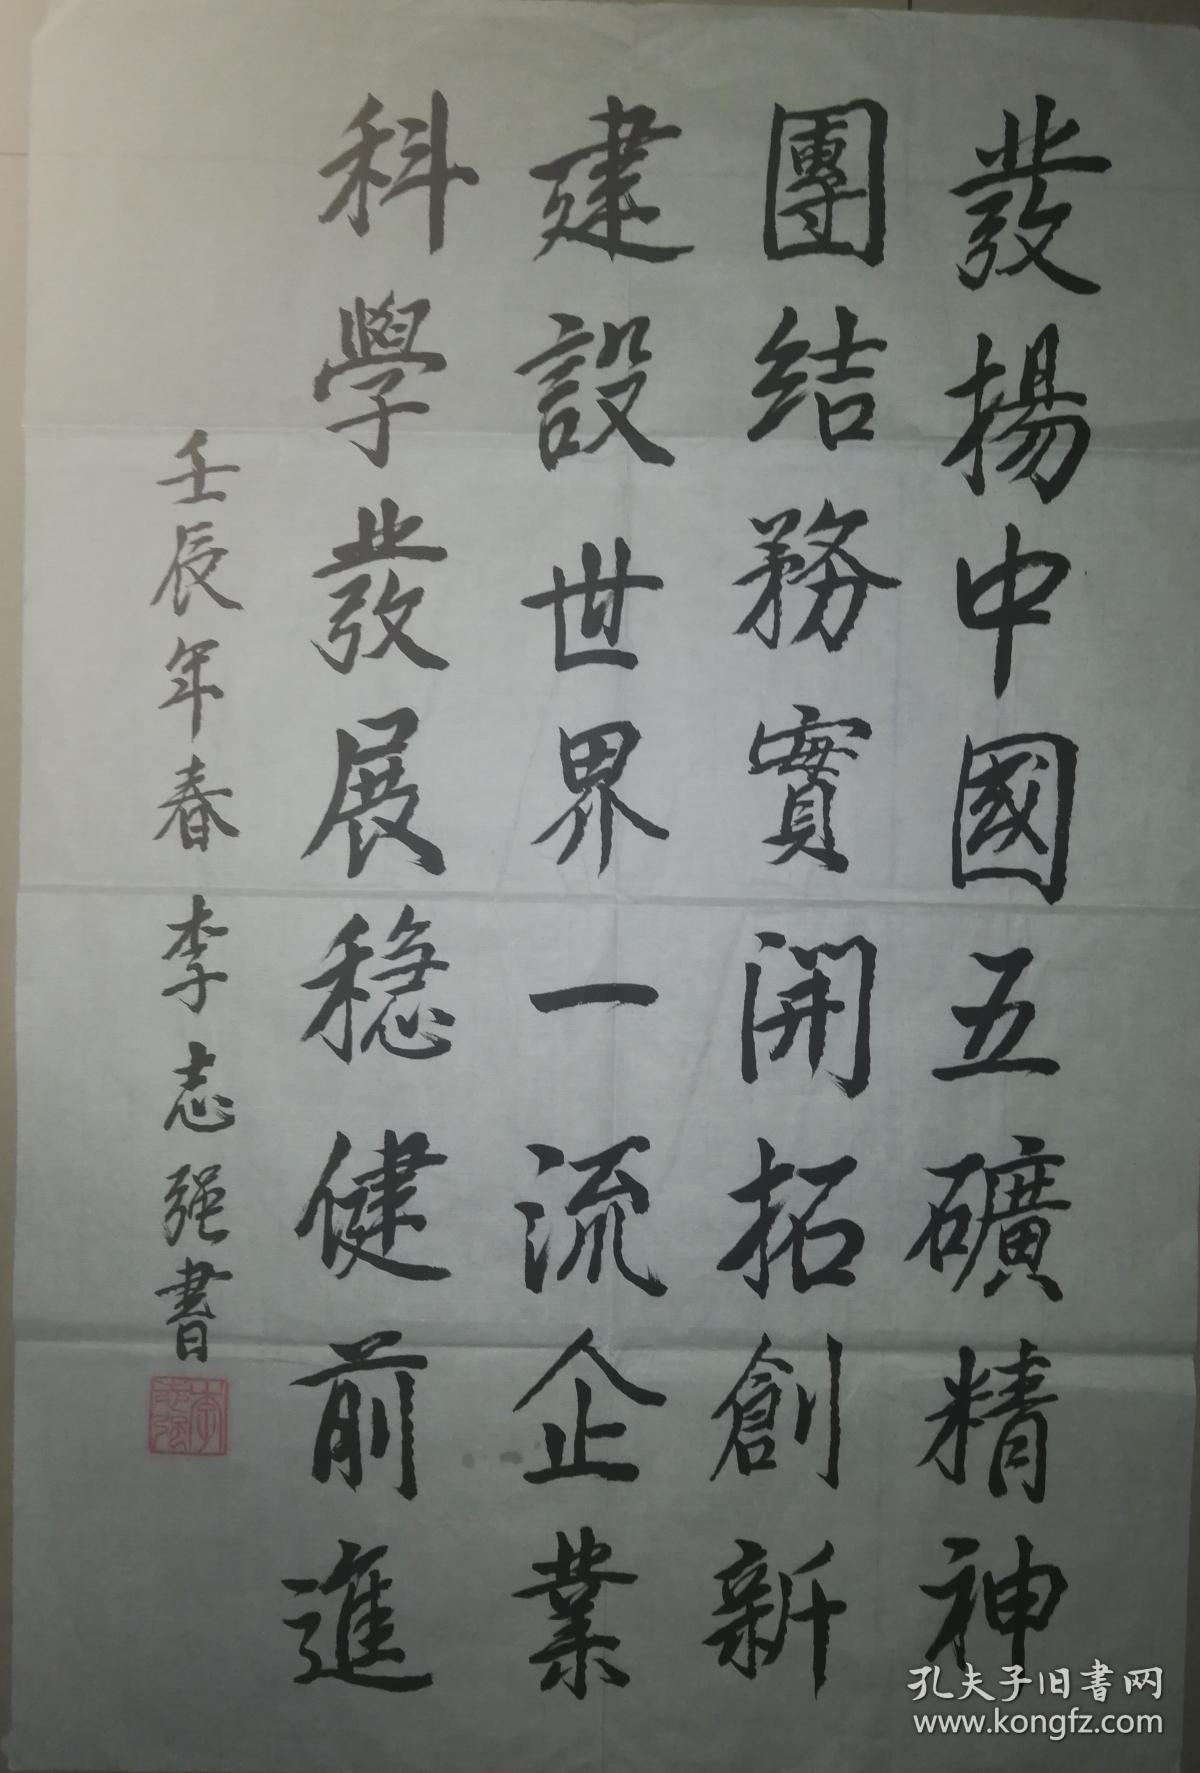 發揚中國五礦精神
團結務實開拓創新
建設世界一流企業
科學發展穩健前進
壬辰年春李志强書
李志强
孔夫子旧書网
www.kongfz.com